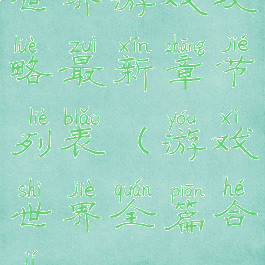 世界游戏攻
lüè zuì xīn zhāng jié
略最新章节
liè biǎo yóu xì
列表（游戏
shì jiè quán piān hé
世界全篇合
jí